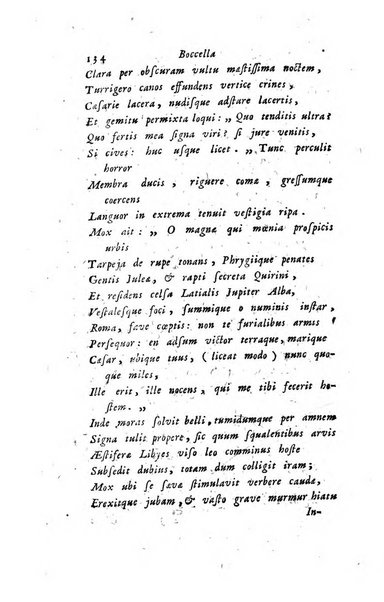 134 Boccella
Clara per obscuram vultu mæstissima noctem,
Turrigero canos effundens vertice crines,
Cæsarie lacera, nudisque adstare lacertis,
Et gemitu permixta loqui: „ Quo tenditis ultra?
Quo fertis mea signa viri? si jure venitis,
Si cives: huc usque licet. „ Tunc perculit
horror
Membra ducis, riguere comæ, gressumque
coercens
Languor in extrema tenuit vestigia ripa.
Mox ait: „ O magnæ qui mœnia prospicis
urbis
Tarpeja de rupe tonans, Phrygiique penates
Gentis Juleæ, & rapti secreta Quirini,
Et residens celsa Latialis Jupiter Alba,
Vestalesque foci, summique o numinis instar,
Roma, fave cœptis: non te furialibus armis
Persequor: en adsum victor terraque, marique
Cæsar, ubique tuus, (liceat modo) nunc quo-
que miles,
Ille erit, ille nocens, qui me tibi fecerit ho-
stem. „
Inde moras solvit belli, tumidumque per amnem
Signa tulit propere, sic quum squalentibus arvis
Æstiferæ Libyes viso leo comminus hoste
Subsedit dubius, totam dum colligit iram;
Mox ubi se sævæ stimulavit verbere caudæ,
Erexitque jubam, & vasto grave murmur hiatu
In-